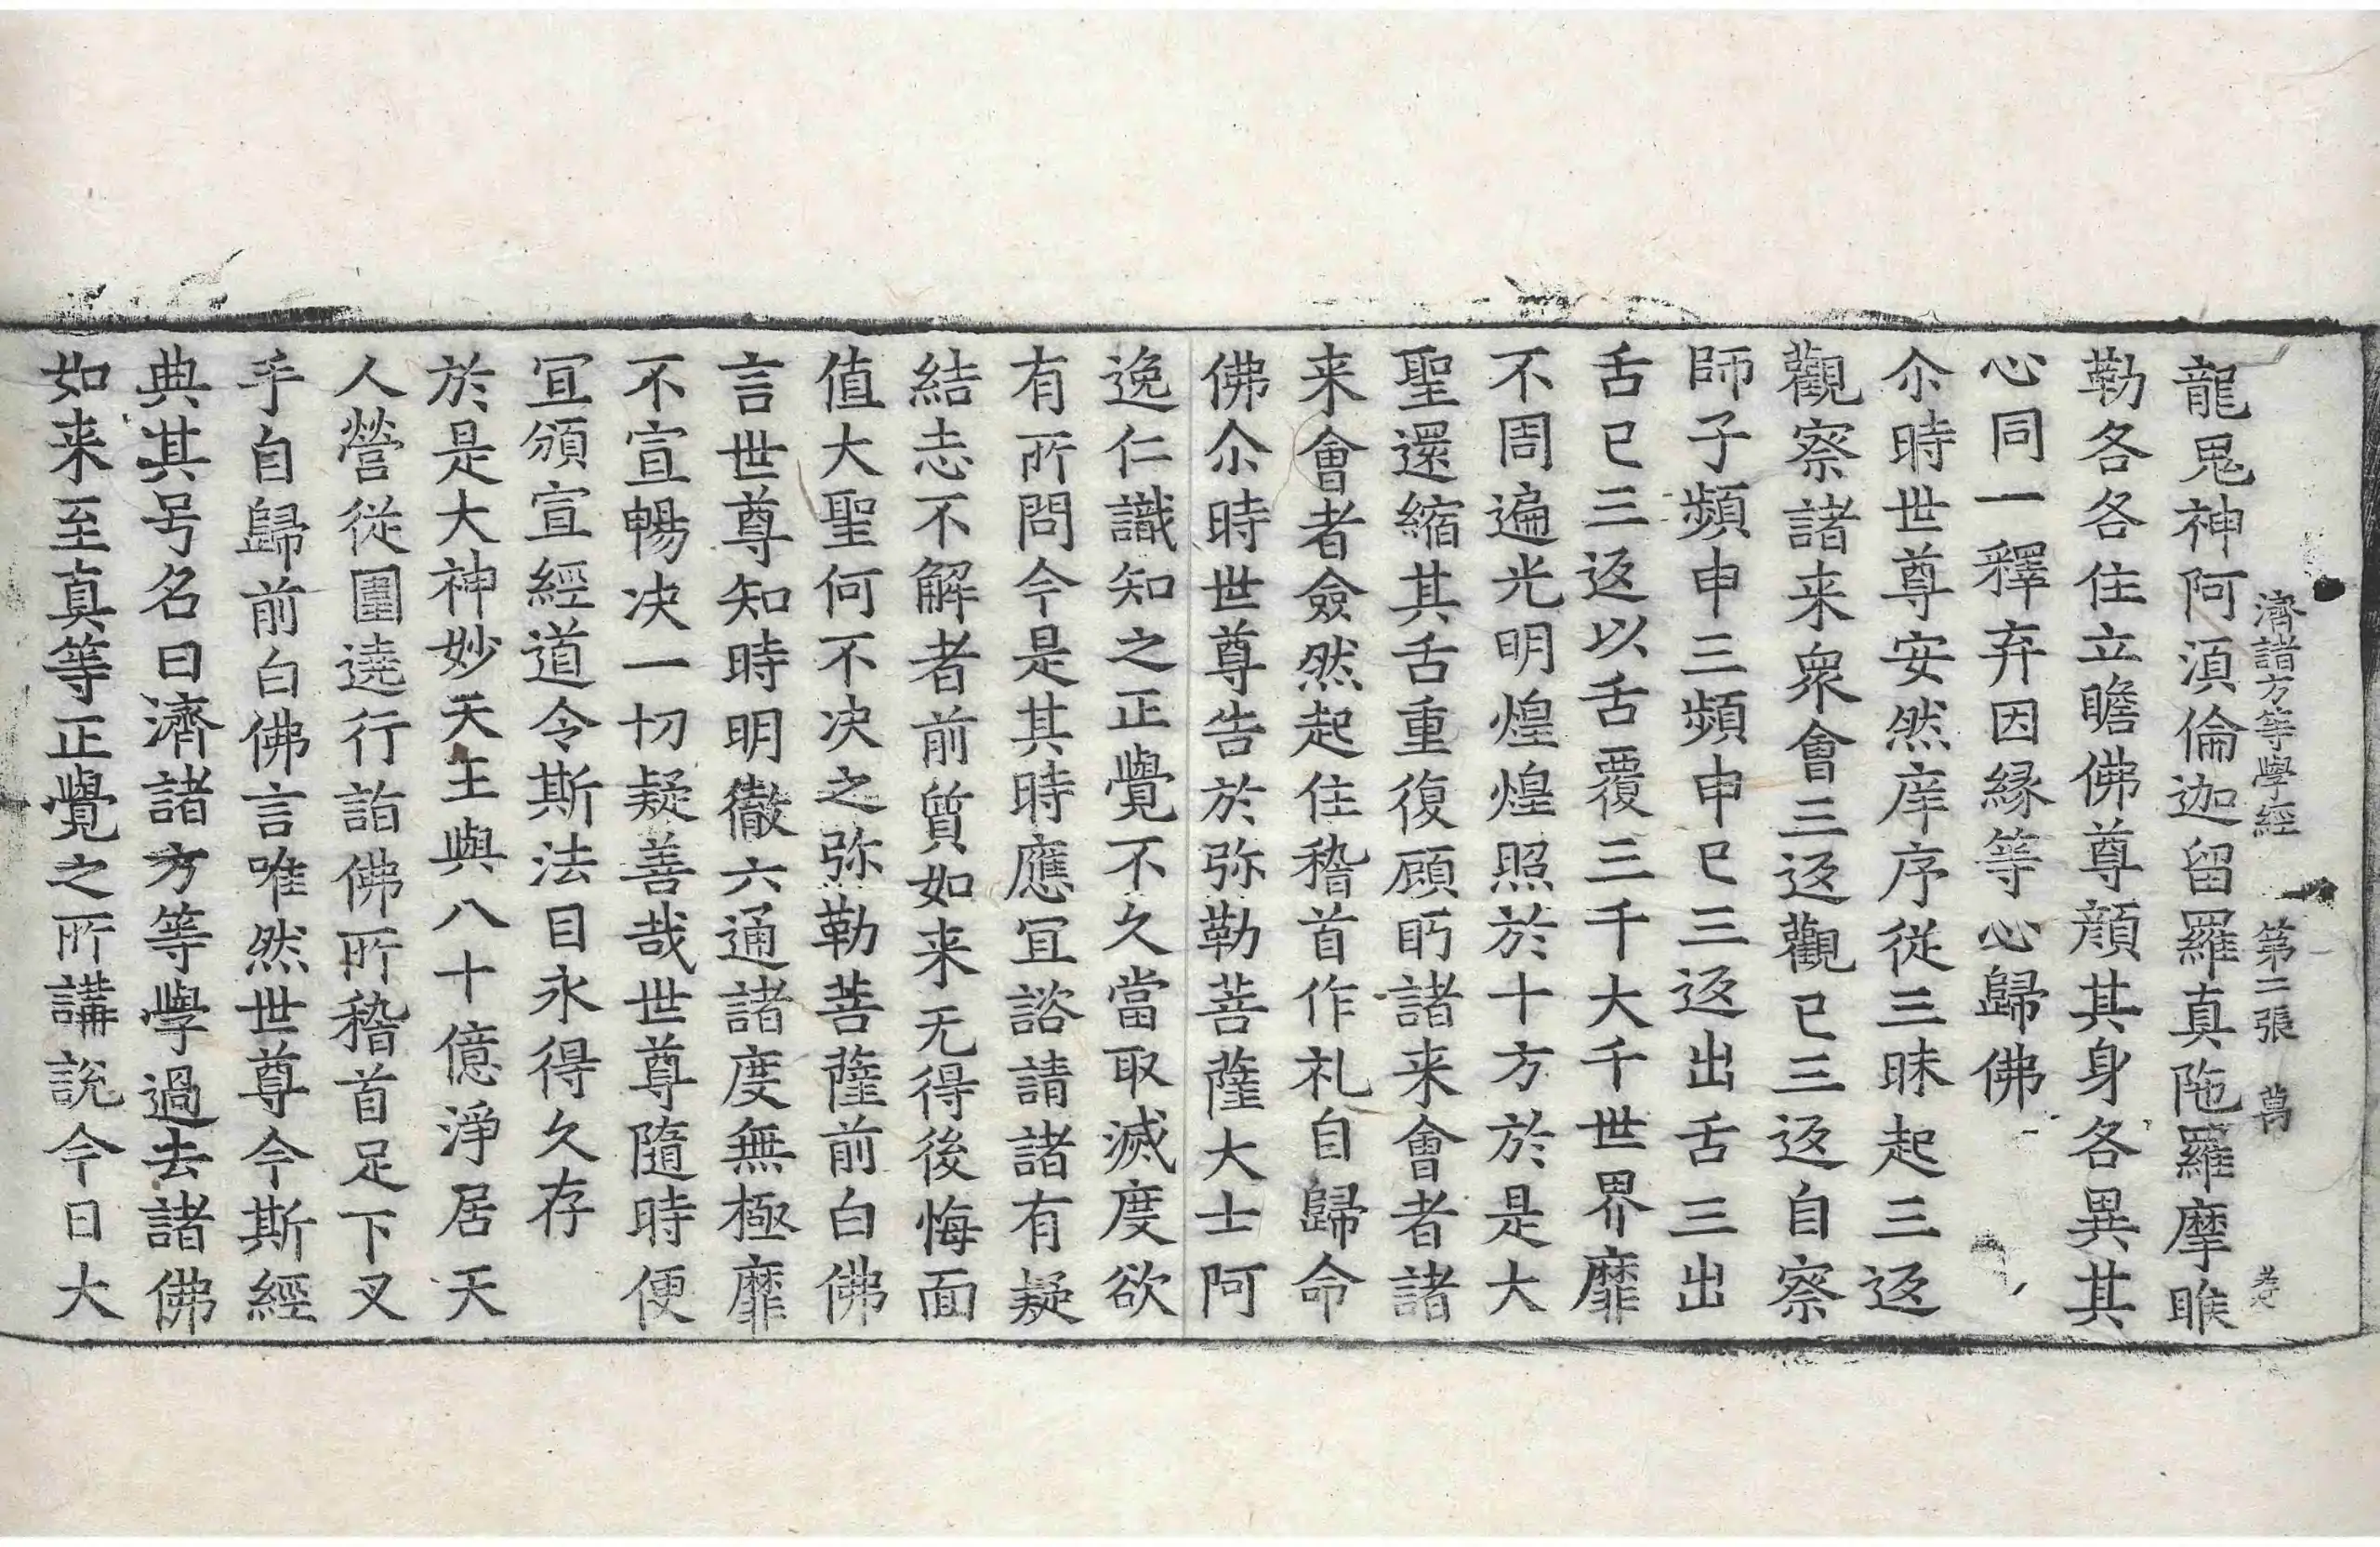 濟諸方等學經　第二張　萬
龍鬼神阿湏倫迦留羅真陁羅摩睺
勒各各住立瞻佛尊顔其身各異其
心同一釋弃因緣等心歸佛
尒時世尊安然庠序從三昧起三返
觀察諸来衆會三返觀已三返自察
師子頻申三頻申已三返出舌三出
舌已三返以舌覆三千大千世界靡
不周遍光明煌煌照於十方於是大
聖還縮其舌重復顧眄諸来會者諸
来會者僉然起住稽首作礼自歸命
佛尒時世尊告於弥勒菩薩大士阿
逸仁識知之正覺不久當取滅度欲
有所問今是其時應冝諮請諸有疑
結志不解者前質如来无得後悔面
值大聖何不决之弥勒菩薩前白佛
言世尊知時明徹六通諸度無極靡
不宣暢决一切疑善哉世尊隨時便
冝頒宣經道令斯法目永得久存
於是大神妙天王與八十億淨居天
人營從圍遶行詣佛所稽首足下叉
手自歸前白佛言唯然世尊今斯經
典其号名曰濟諸方等學過去諸佛
如来至真等正覺之所講說今日大